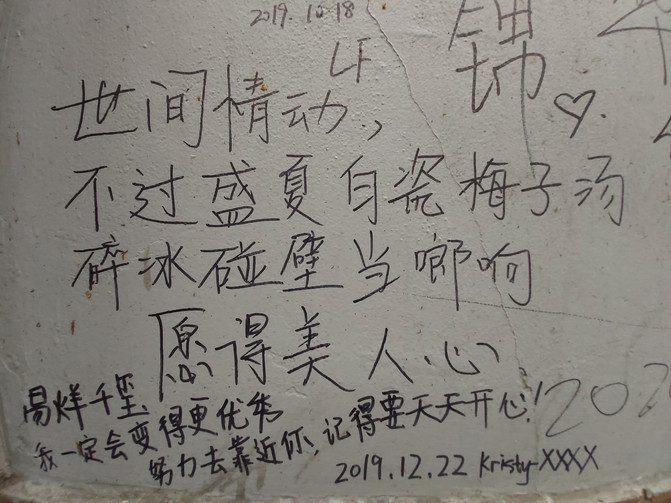 2019.10.18
LF
锦
世间情动,
不过盛夏白瓷梅子汤
碎冰碰壁当啷响
愿得美人心
易烊千玺
我一定会变得更优秀
努力去靠近你,记得要天天开心!
2019.12.22 Kristy-XXXX
202